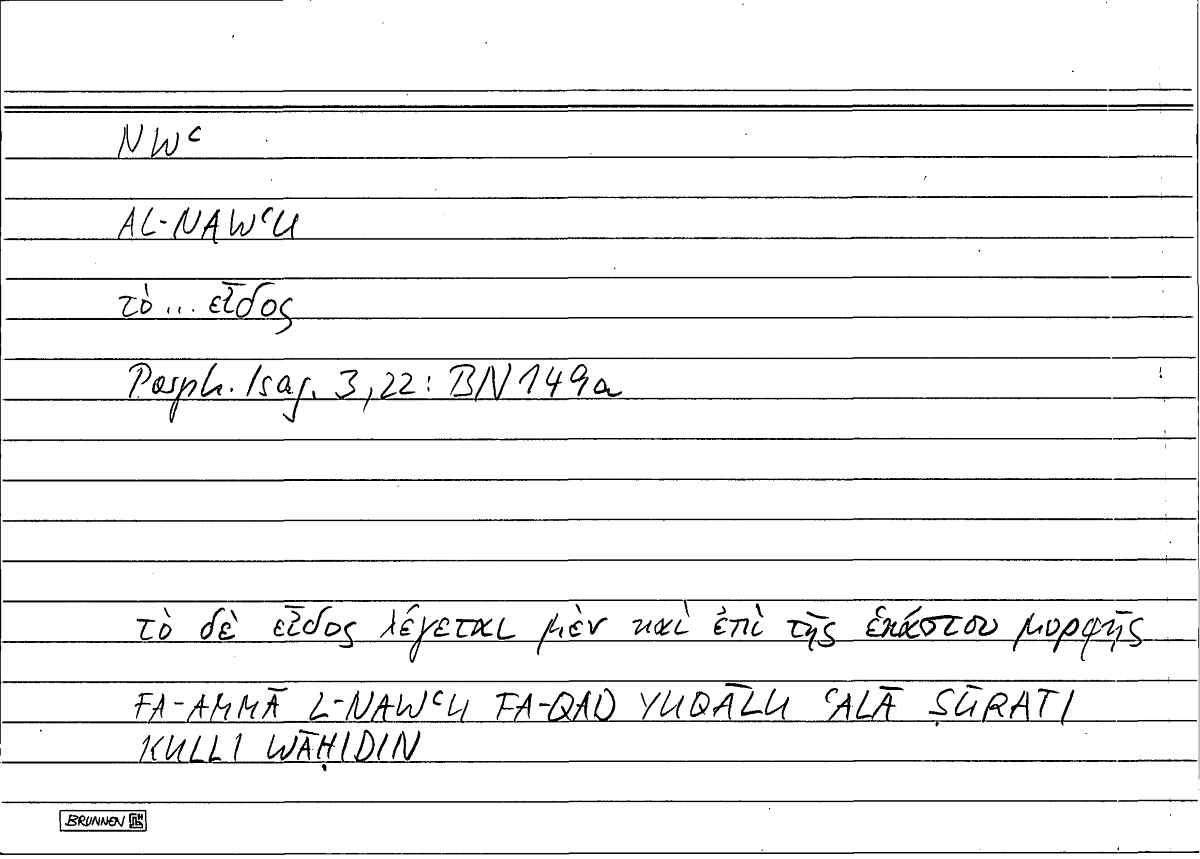 NWʿ
AL-NAWʿU
τὸ ... εἶδος
Porph. Isag. 3,22: BN 149a
τὸ δὲ εἶδος λέγεται μὲν καὶ ἐπὶ τῆς ἑκάστου μορφῆς
FA-AMMĀ L-NAWʿU FA-QAD YUQĀLU ʿALĀ ṢŪRATI
KULLI WĀḤIDIN
BRUNNEN